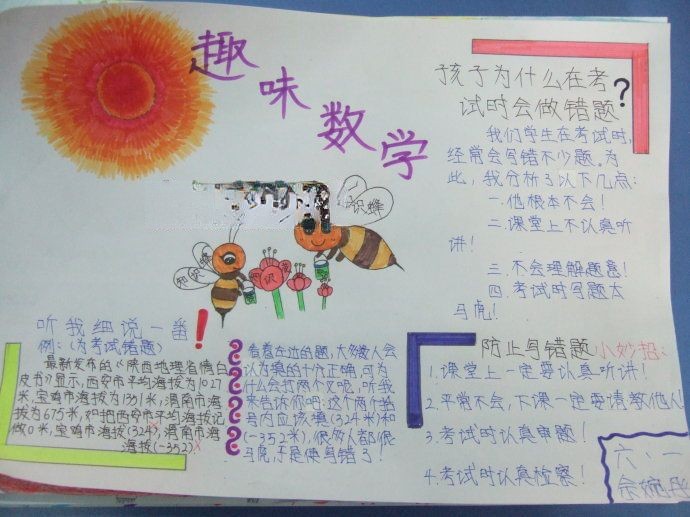 趣味数学
孩子为什么在考
试时会做错题?
我们学生在考试时,
经常会写错不少题。为
此,我分析了以下几点:
一.他根本不会!
二.课堂上不认真听
讲!
三.不会理解题意!
四.考试时写题太
马虎!
识蜂
知识蜂
识
听我细说一番!
例:(为考试错题)
最新发布的《陕西地理省情白
皮书》显示,西安市平均海拔为1027
米,宝鸡市海拔为1351米,渭南市海
拔为675米,如把西安市平均海拔记
做0米,宝鸡市海拔(324),渭南市海
海拔(-352)
看看左边的题,大多数人会
认为填的十分正确,可为
什么会打两个叉呢,听我
来告诉你吧:这个两个括
号内应该填(324米)和
(-352米),很多人都很
马虎,不是便写错了!
防止写错题小妙招:
1.课堂上一定要认真听讲!
2.平常不会,下课一定要请教他人
3.考试时认真审题!
4.考试时认真检察!
六、一
余婉